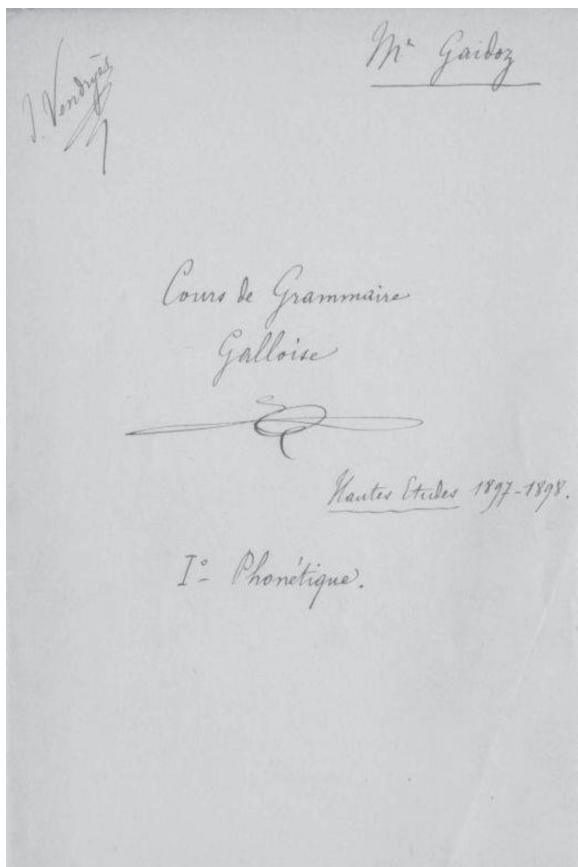 J. Vendryès
Mr Gaidoz
Cours de Grammaire
Galloise
Hautes Etudes 1897-1898.
I° Phonétique.